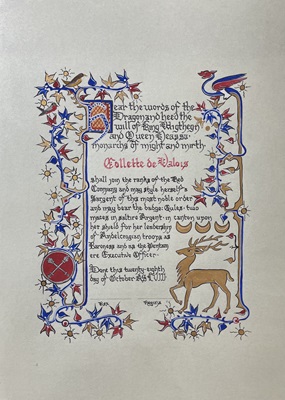 Hear the words of the
Dragon and heed the
will of King
and Queen
monarchs of might and mirth.
Collette de Valois
shall join the ranks of the Red
Company and may style herself a
Sargent of this most noble order
and may bear the badge: Gules, two
maces in saltire Argent, in canton upon
her shield for her leadership
of Andelcragian troops as
Baroness and as the Pentam
ere Executive Officer.
Done this twenty-eighth
day of October AS LVIII
Rex Regina